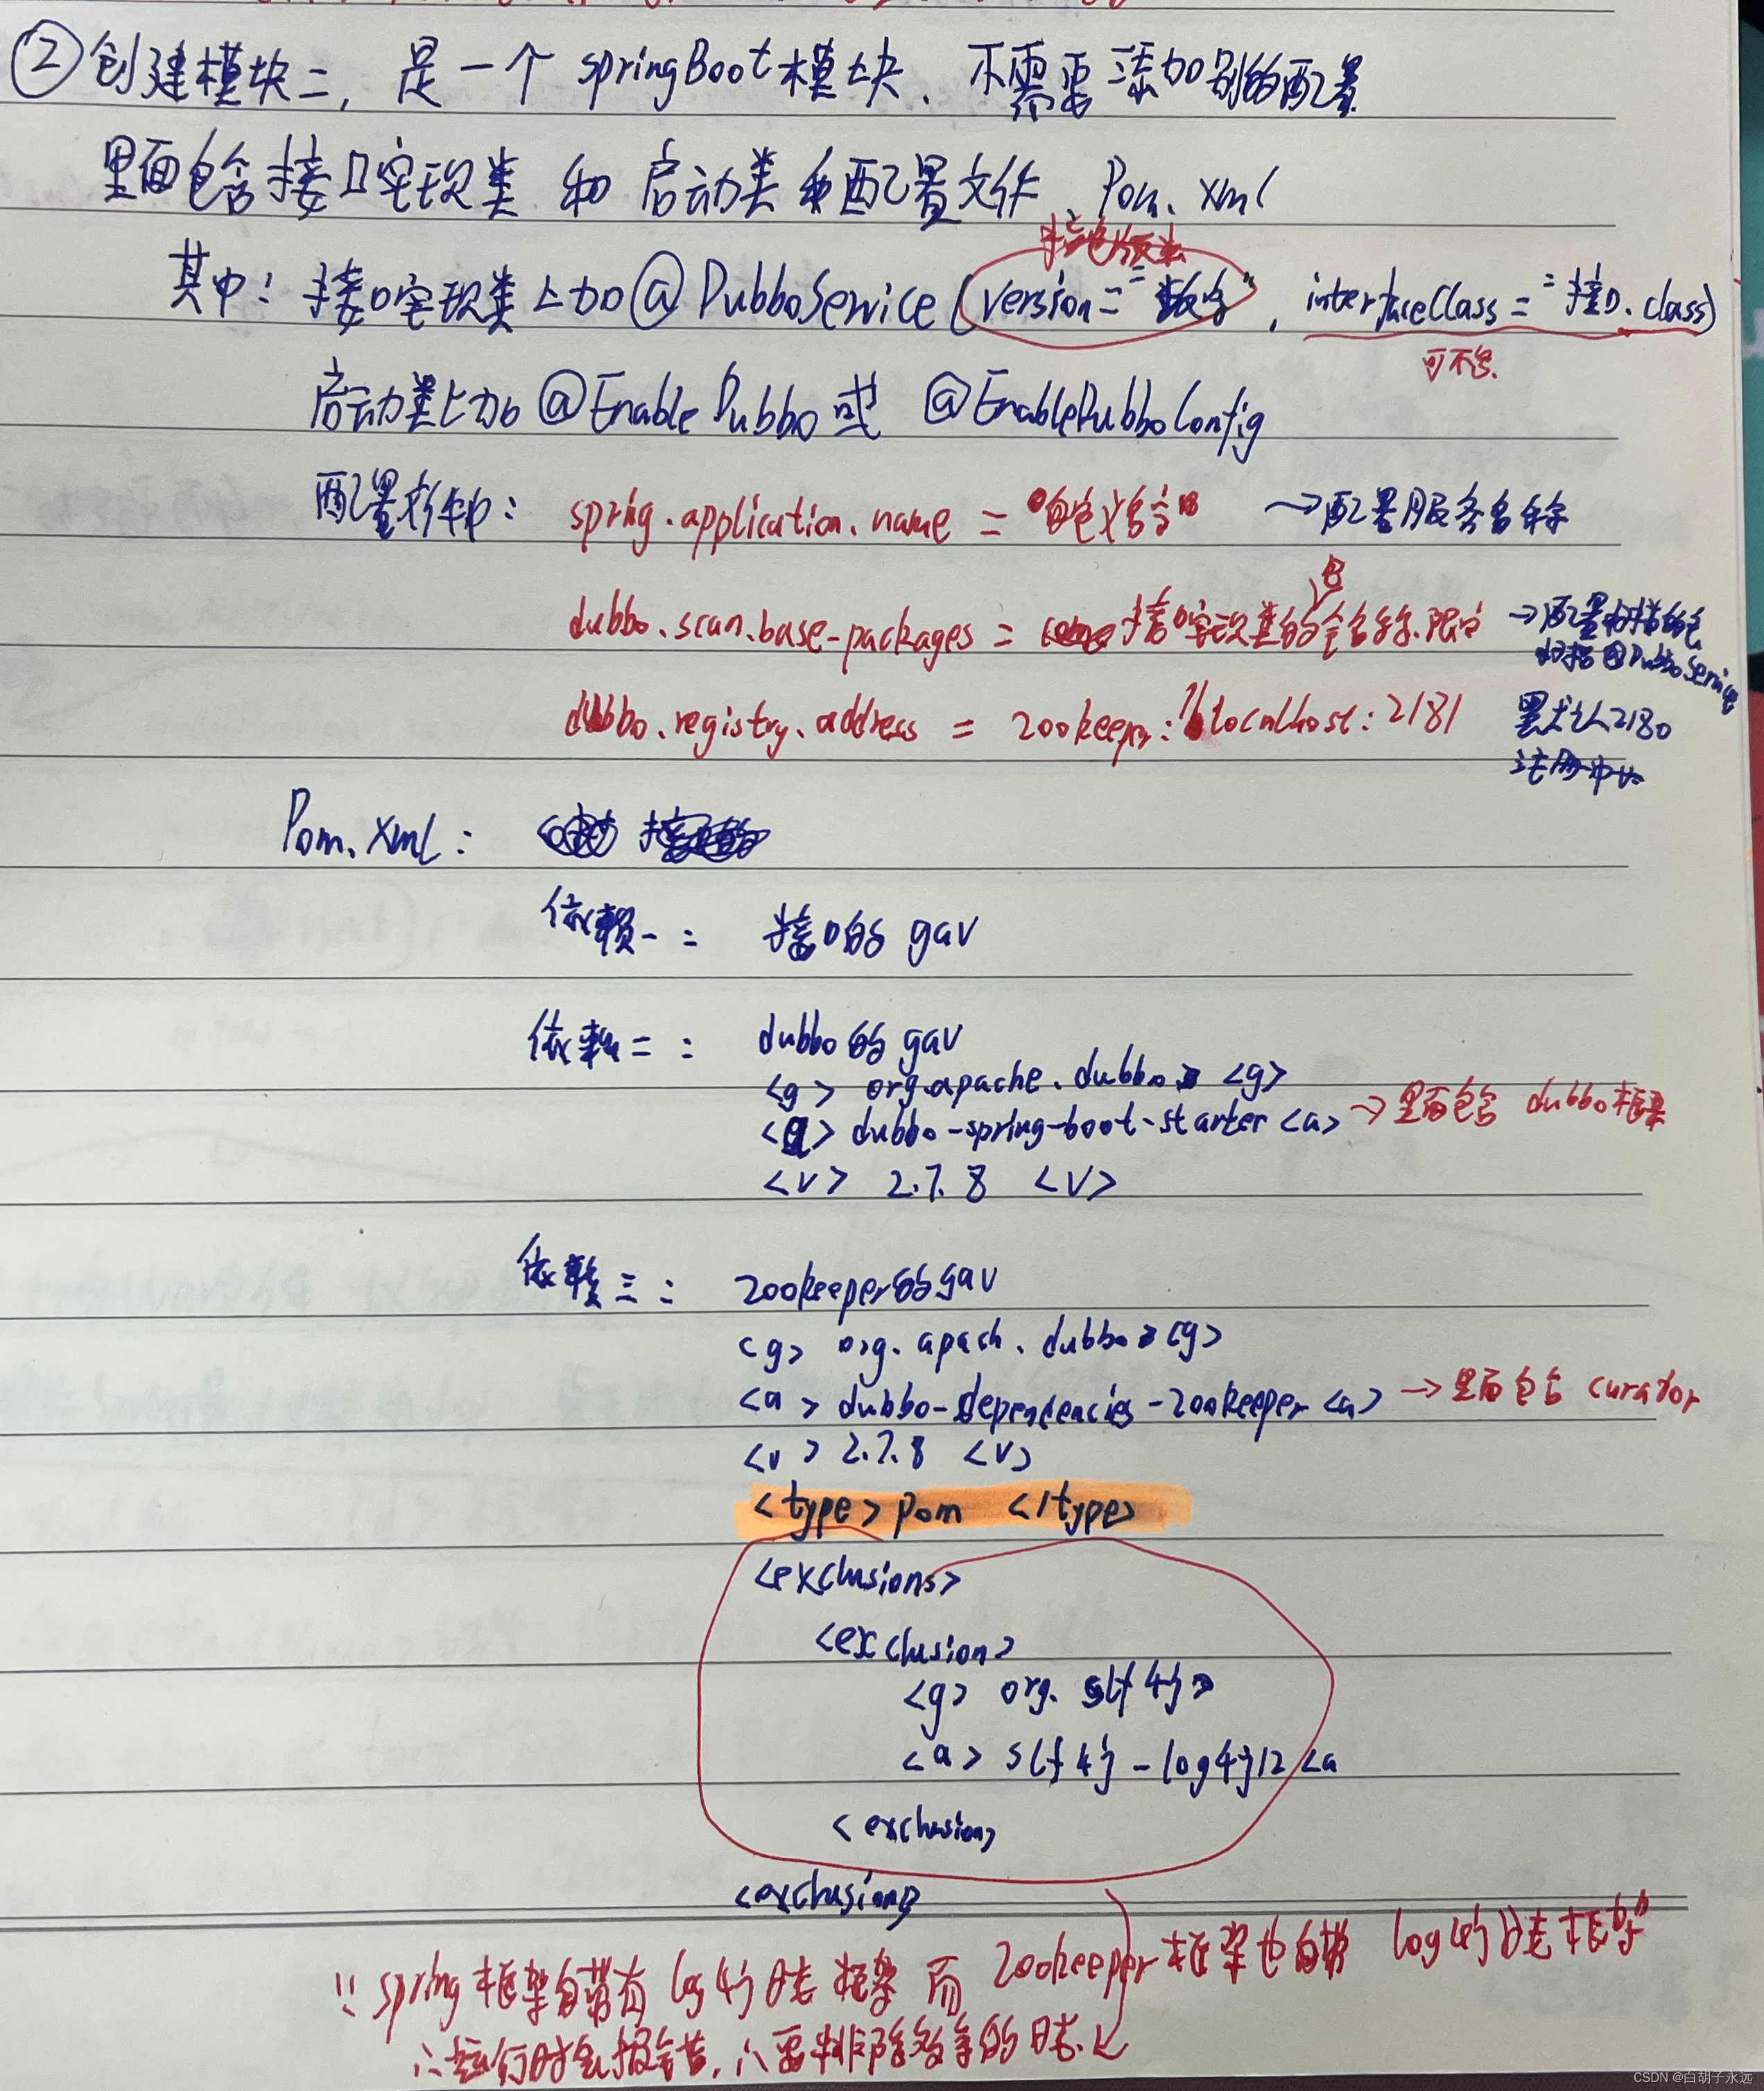 ②创建模块二, 是一个 springBoot模块、不需要添加别的配置
里面包含接口实现类 和 启动类和配置文件、Pom.xml
指定版本
其中: 接口实现类上加@DubboService(version="数字", interfaceClass="接口.class)
可不写.
启动类上加 @EnableDubbo 或 @EnableDubboConfig
配置文件中: spring.application.name = "自定义名字" →配置服务名称
包
dubbo.scan.base-packages = 接口实现类的全名称.限定 →配置扫描的包
扫描@DubboService
dubbo.registry.address = zookeeper://localhost:2181 默认2180
注册中心
Pom.xml:
依赖一: 接口的 gav
依赖二: dubbo的gav
<g> org.apache.dubbo <g>
<a> dubbo-spring-boot-starter <a> →里面包含 dubbo框架
<v> 2.7.8 <v>
依赖三: zookeeper的gav
<g> org.apach.dubbo <g>
<a> dubbo-dependencies-zookeeper <a> →里面包含 curator
<v> 2.7.8 <v>
<type> pom </type>
<exclusions>
<exclusion>
<g> org.slf4j
<a> slf4j-log4j12 <a
<exclusion>
<exclusions>
∵ spring框架自带有 log4j日志框架 而 zookeeper框架也自带 log4j日志框架
∴运行时会报错, ∴要排除多余的日志
CSDN @白胡子永远